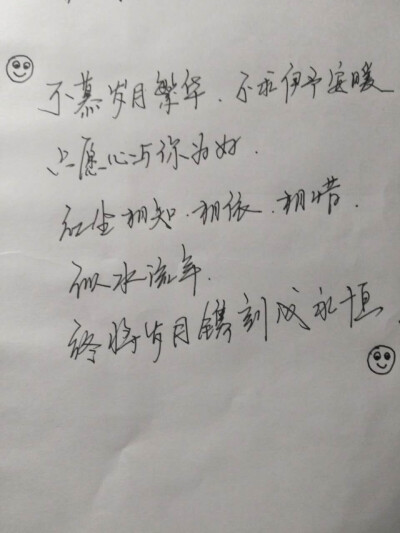 不慕岁月繁华.不求伊予安暖
只愿心与你为好.
红尘相知.相依.相惜.
似水流年.
终将岁月镌刻成永恒